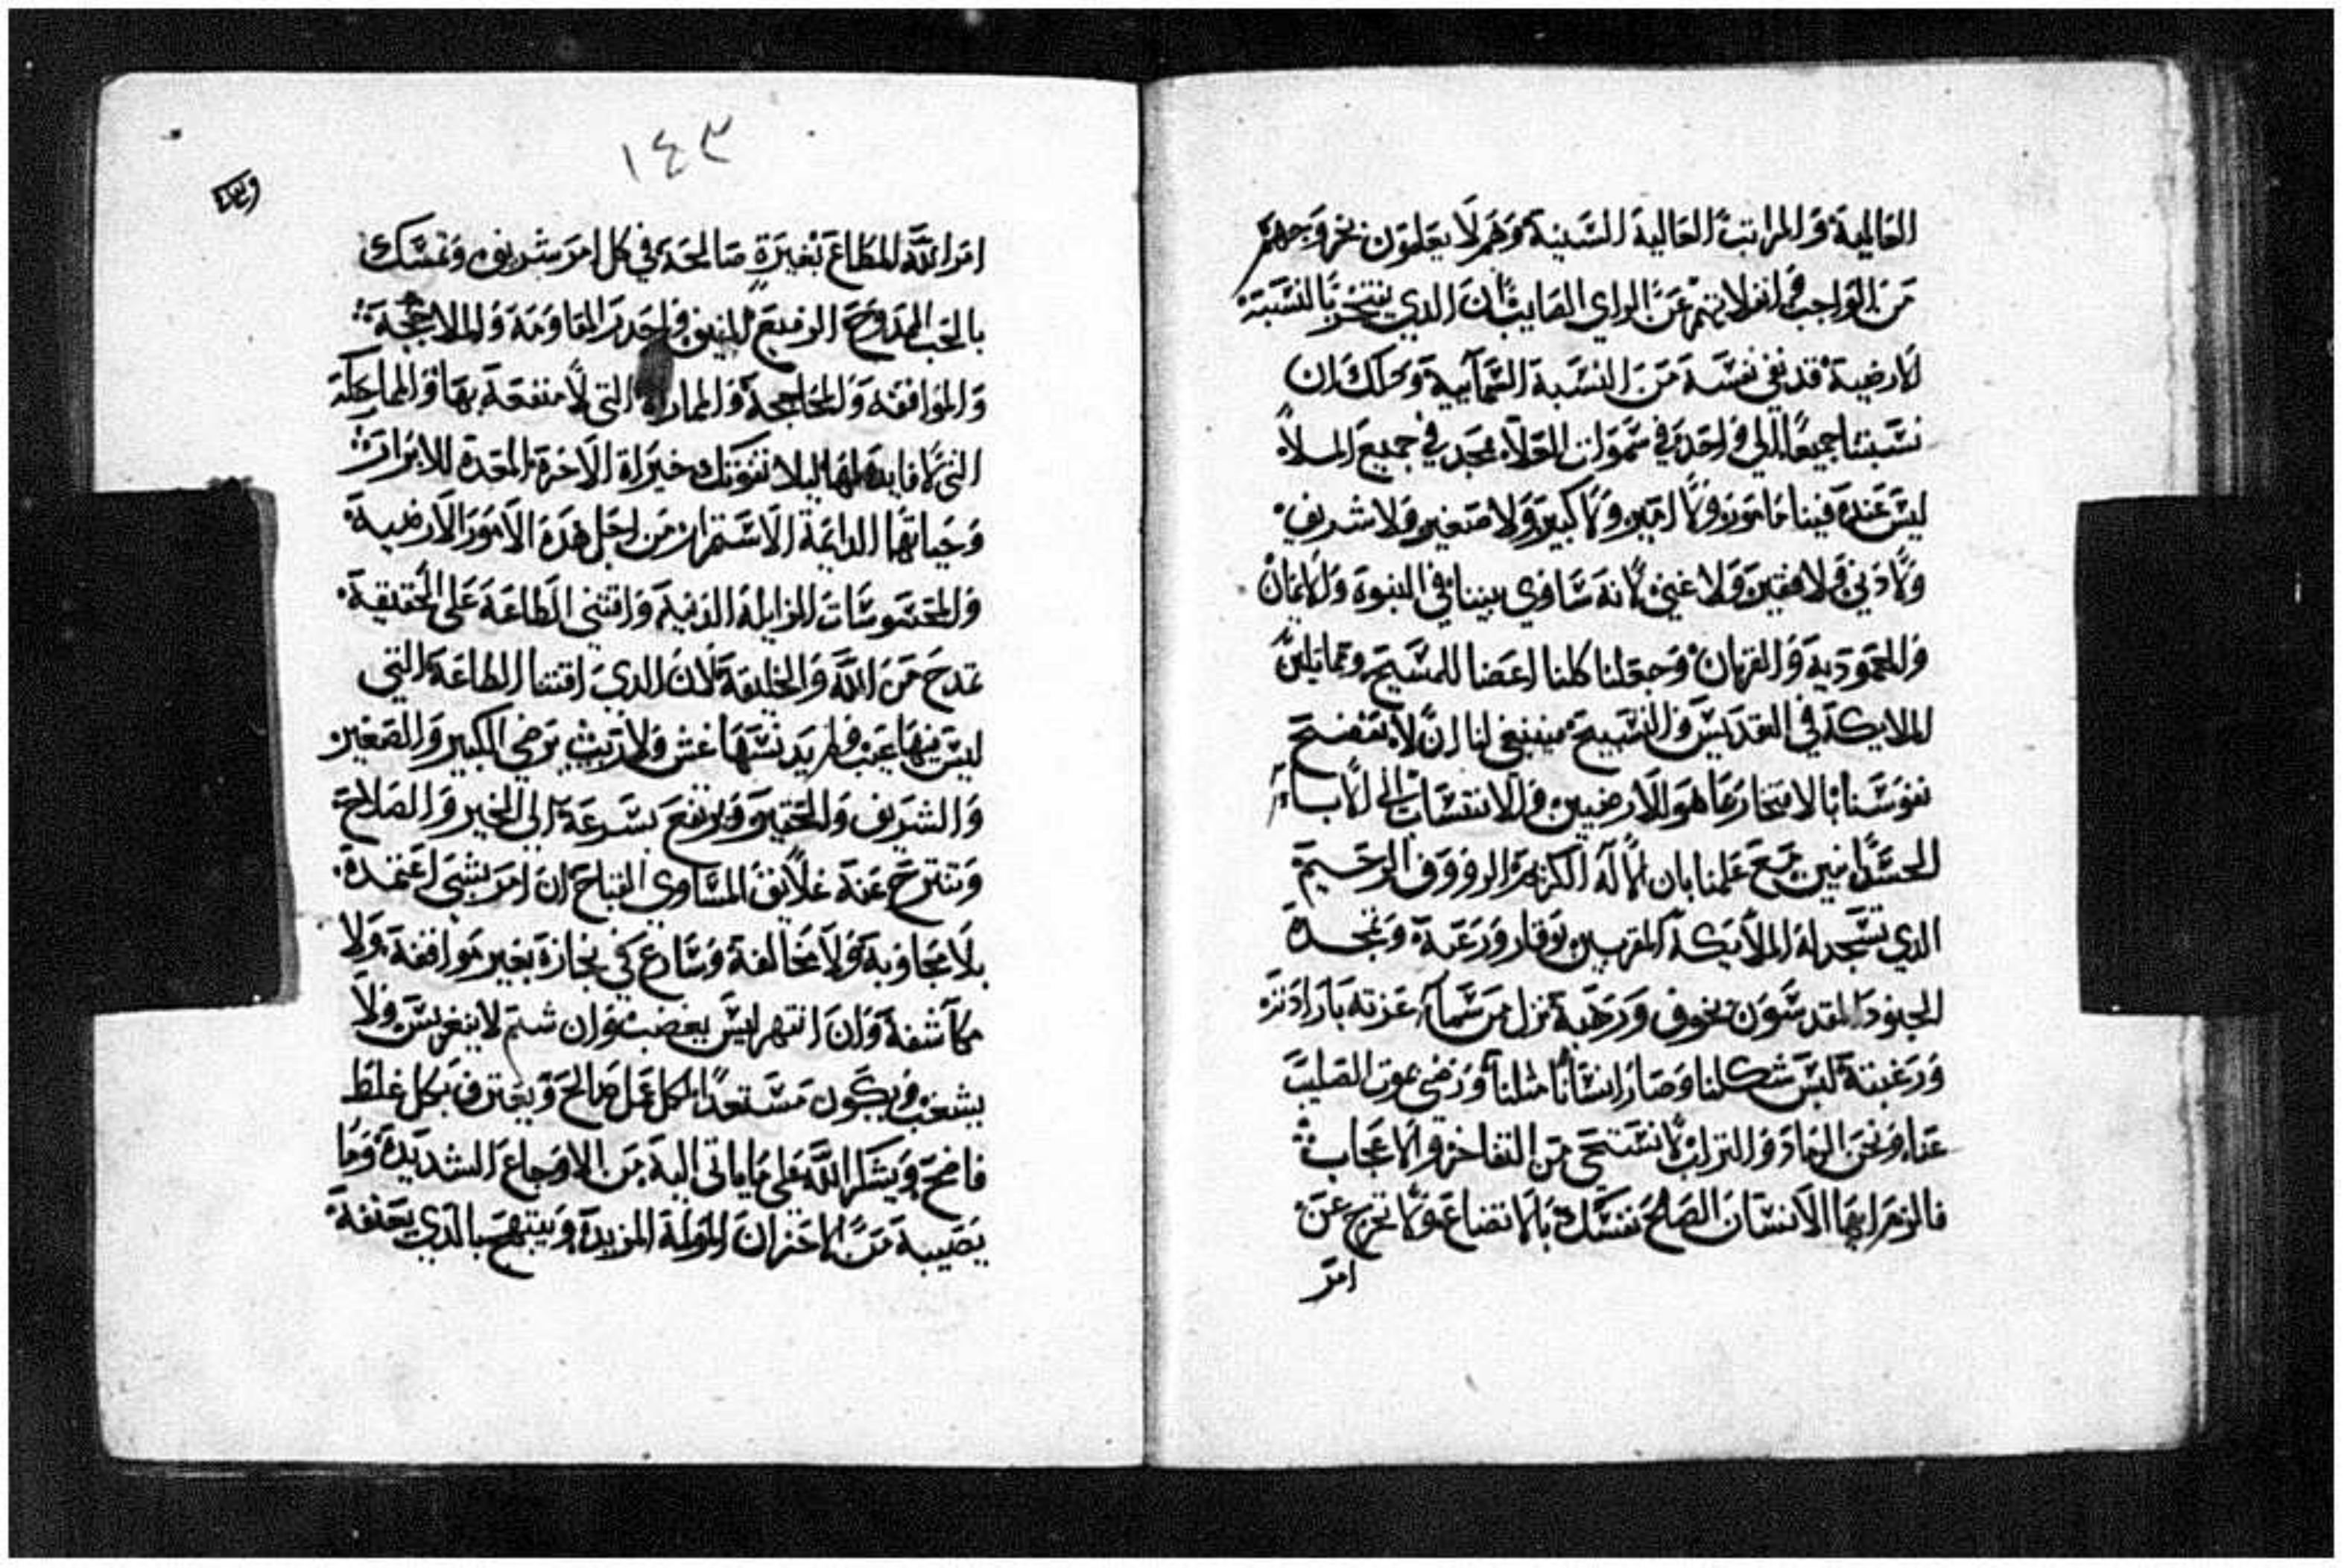 العالمية والمراتب العالية السنية وهم لا يعلمون بخروجهم
من الواجب وانفزلانهم عن الراي الصايب ان الدي يفتخر بالنسبة
الارضية قد نفى نفسه من النسبة السمآيية وكدلك ان
نسبتنا جميعًا الي واحد في سموات العلاء مجد في جميع الملأ
ليس عنده فينا مامور ولا امير ولا كبير ولا صغير ولا شريف
ولا دني ولا فقير ولا غني لانه ساوي بيننا في البنوة والايمان
والمعمودية والقربان وجعلنا كلنا اعضا للمسيح ومماثلين
الملايكة في التقديس والتسبيح فينبغي لنا ان لا نفضح
نفوسنا بالافتخار بما هو للارضيين والانتساب الى الاباء
الجسدانيين مع علمنا بان الاله الكريم الرووف الرحيم
الدي تسجد له الملايكة المقربين بوقار ورعبة وتمجده
الجنود المقدسون بخوف ورهبة نزل من سمآء عزته بارادته
ورغبته لبس شكلنا وصار انسانًا مثلنا ورضي بموت الصليب
عنا ونحن الرماد والتراب لا نستحي من التفاخر والاعجاب
فالزم ايها الانسان الصالح تنسك بالاتضاع ولا تخرج عن
امر
١٤٣
امر الله المطاع بغيرة صالحة في كل امر شريف وتمسك
بالحب الممدوح الرفيع المنيف واحدر المقاومة والملاججة
والموافقه والمحاججة والمماراة التي لا منفعة بها والمماحكة
التي لا فايدة لها ليلا تفوتك خيراة الاخرة المعدة للابرار
وحياتها الدايمة الاستمرار من اجل هده الامور الارضية
والمحسوسات الزايلة الدنية واقتني الطاعة على الحقيقة
تمدح من الله والخليقة لان الدي اقتنا الطاعة التي
ليس فيها عيب ولم يدنسها غش ولا ريث يرضي الكبير والصغير
والشريف والحقير ويرتفع بسرعة الي الخير والصلاح
وتنتزح عنه غلايف المساوي القباح ان امر بشي اعتمده
بلا مجاوبة ولا مخالفة وسارع في نجازه بغير موافقة ولا
مكاشفة وان انتهر ليس يغضب وان شتم لا ينغر يس ولا
يشغب ويكون مستعدًا لكل عمل صالح ويعترف بكل غلط
فاضح ويشكر الله على ما ياتي اليه من الاوجاع الشديدة وما
يصيبه من الاحزان المولمة المزيدة ويبتهج بالدي يعنفه